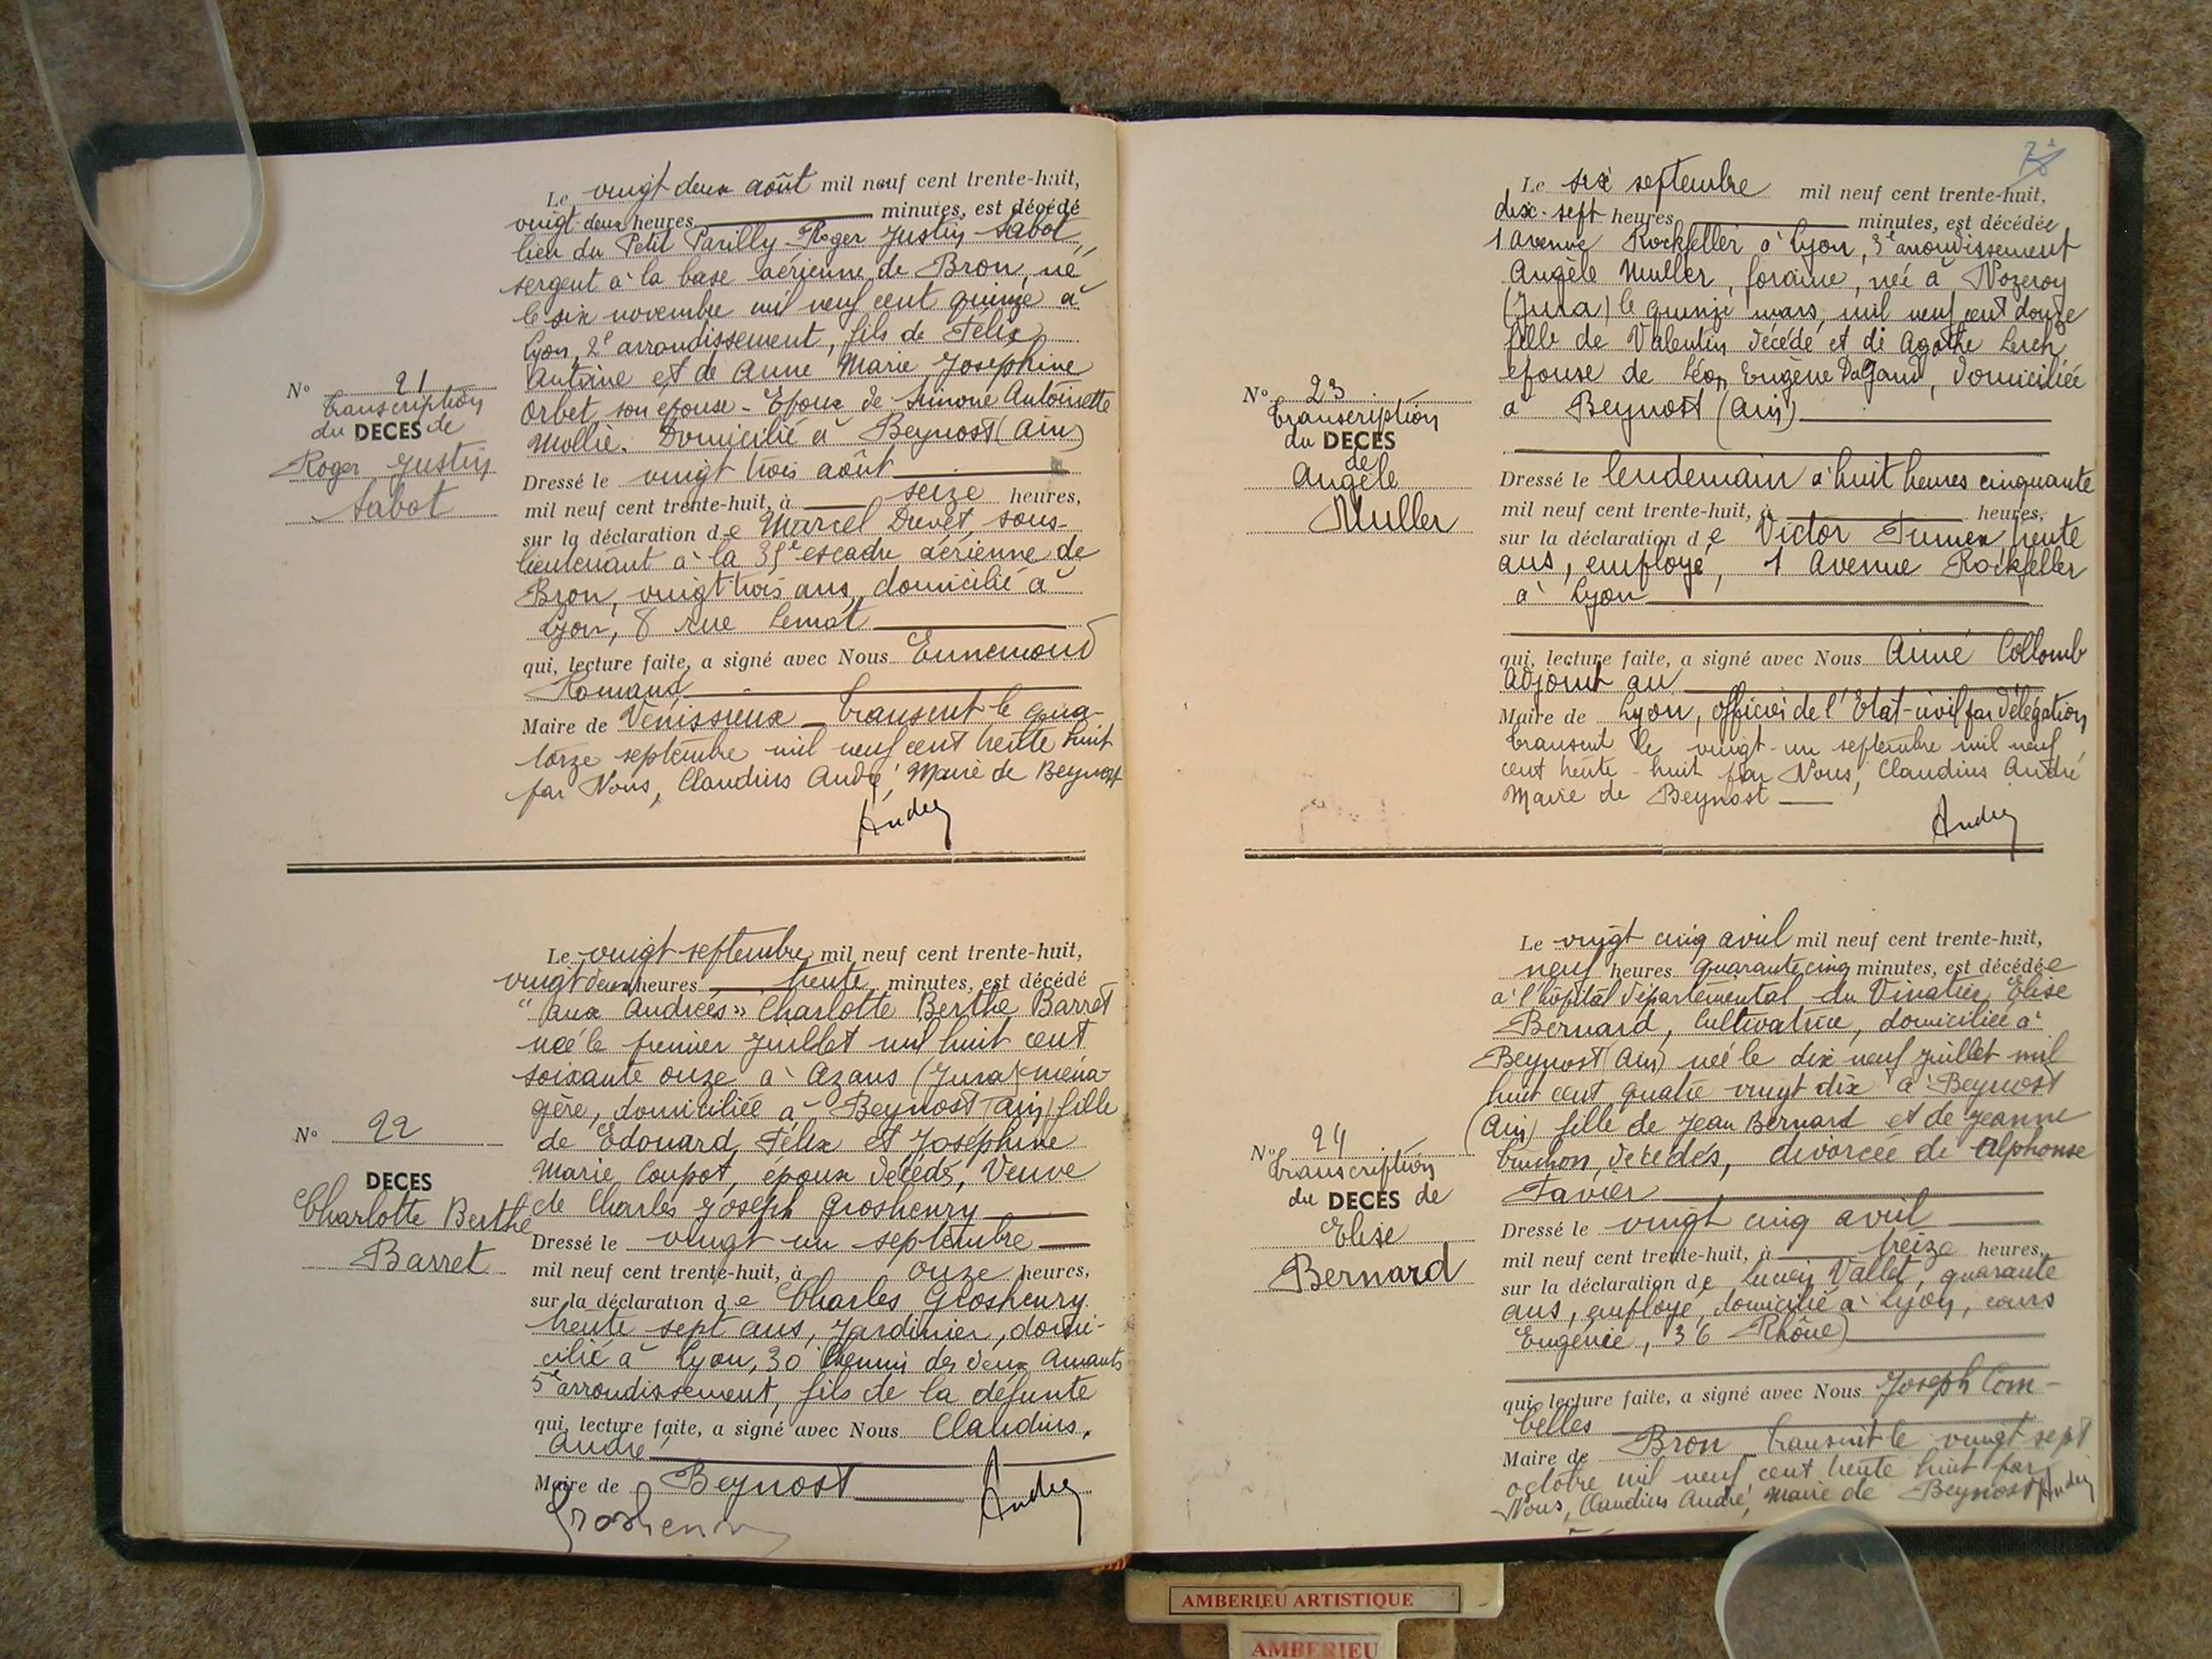 Le vingt deux août mil neuf cent trente-huit,
vingt-deux heures minutes, est décédé
lieu du Petit Parilly Roger Justin Sabot,
sergent à la base aérienne de Bron, né
le six novembre mil neuf cent quinze à
Lyon, 2e arrondissement, fils de Félix
Antoine et de Anne Marie Joséphine
Orbet son épouse - Epoux de Simone Antoinette
Mollié. Domicilié à Beynost (Ain)
N° 21
Transcription
du DECES de
Roger Justin
Sabot
Dressé le vingt trois août
mil neuf cent trente-huit, à seize heures,
sur la déclaration de Marcel Duvet, sous-
lieutenant à la 35e escadre aérienne de
Bron, vingt-trois ans, domicilié à
Lyon, 8 rue Lemot
qui, lecture faite, a signé avec Nous Ennemond
Romand
Maire de Vénissieux - Transcrit le qua-
torze septembre mil neuf cent trente huit
par Nous, Claudius André, Maire de Beynost
André
Le vingt septembre mil neuf cent trente-huit,
vingt deux heures trente minutes, est décédé
"aux Andrées" Charlotte Berthe Barret
née le premier Juillet mil huit cent
soixante onze à Azans (Jura) ména-
gère, domiciliée à Beynost (Ain) fille
de Edouard Félix et Joséphine
Marie Coupot, époux décédés, Veuve
de Charles Joseph Groshenry
N° 22
DECES
Charlotte Berthe
Barret
Dressé le vingt un septembre
mil neuf cent trente-huit, à onze heures,
sur la déclaration de Charles Groshenry
trente sept ans, Jardinier, domi-
cilié à Lyon, 30 Chemin des deux Amants
5e arrondissement, fils de la défunte
qui, lecture faite, a signé avec Nous Claudius
André
Maire de Beynost
Groshenry
André
Le six septembre mil neuf cent trente-huit,
dix-sept heures minutes, est décédée
1 avenue Rockfeller à Lyon, 3e arrondissement
Angèle Muller, foraine, née à Nozeroy
(Jura) le quinze mars, mil neuf cent douze
fille de Valentin décédé et de Agathe Lerch
épouse de Léon Eugène Dugand, domiciliée
à Beynost (Ain)
N° 23
Transcription
du DECES
de
Angèle
Muller
Dressé le lendemain à huit heures cinquante
mil neuf cent trente-huit, à heures,
sur la déclaration de Victor trente
ans, employé, 1 Avenue Rockfeller
à Lyon
qui, lecture faite, a signé avec Nous Aimé Collomb
adjoint au
Maire de Lyon, officier de l'Etat-civil par délégation
Transcrit le vingt-un septembre mil neuf
cent trente-huit par Nous, Claudius André
Maire de Beynost
André
Le vingt cinq avril mil neuf cent trente-huit,
neuf heures quarante cinq minutes, est décédée
à l'hôpital départemental du Vinatier, Elise
Bernard, cultivatrice, domiciliée à
Beynost (Ain) née le dix neuf juillet mil
huit cent quatre vingt dix à Beynost
(Ain) fille de Jean Bernard et de Jeanne
décédés, divorcée de Alphonse
Favier
N° 24
Transcription
du DECES de
Elise
Bernard
Dressé le vingt cinq avril
mil neuf cent trente-huit, à treize heures,
sur la déclaration de Lucien Vallet, quarante
ans, employé, domicilié à Lyon, cours
Eugénie, 36 Rhône)
qui, lecture faite, a signé avec Nous Joseph Com-
belles
Maire de Bron Transcrit le vingt sept
octobre mil neuf cent trente huit par
Nous, Claudius André, Maire de Beynost André
AMBERIEU ARTISTIQUE
AMBERIEU